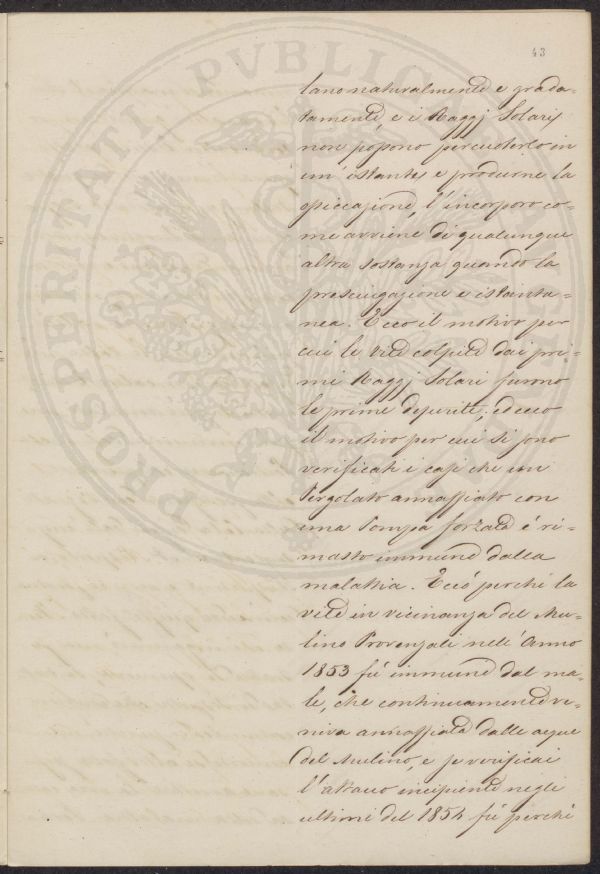 43
lano naturalmente e grada=
tamente, e i Raggj Solarj
non possono percuoterlo in
un' istante e produrne la
essiccazione, l'incorporo co=
me avviene di qualunque
altra sostanza quando la
prosciugazione e istanta=
nea. Ecco il motivo per
cui le Viti colpite dai pri=
mi Raggj Solari furono
le prime , ed ecco
il motivo per cui si sono
verificati i casi che un
Pergolato annaffiato con
una Pompa forzata é ri=
masto immune dalla
malattia. E ció perché la
vite in vicinanza del Mu=
lino Provenzali nell'Anno
1853 fú immune dal ma=
le, che continuamente ve=
niva annaffiata dalle acque
del Mulino, e se verificai
l'attacco incipiente negli
ultimi del 1854 fú perché
PROSPERITATI PVBLICAE